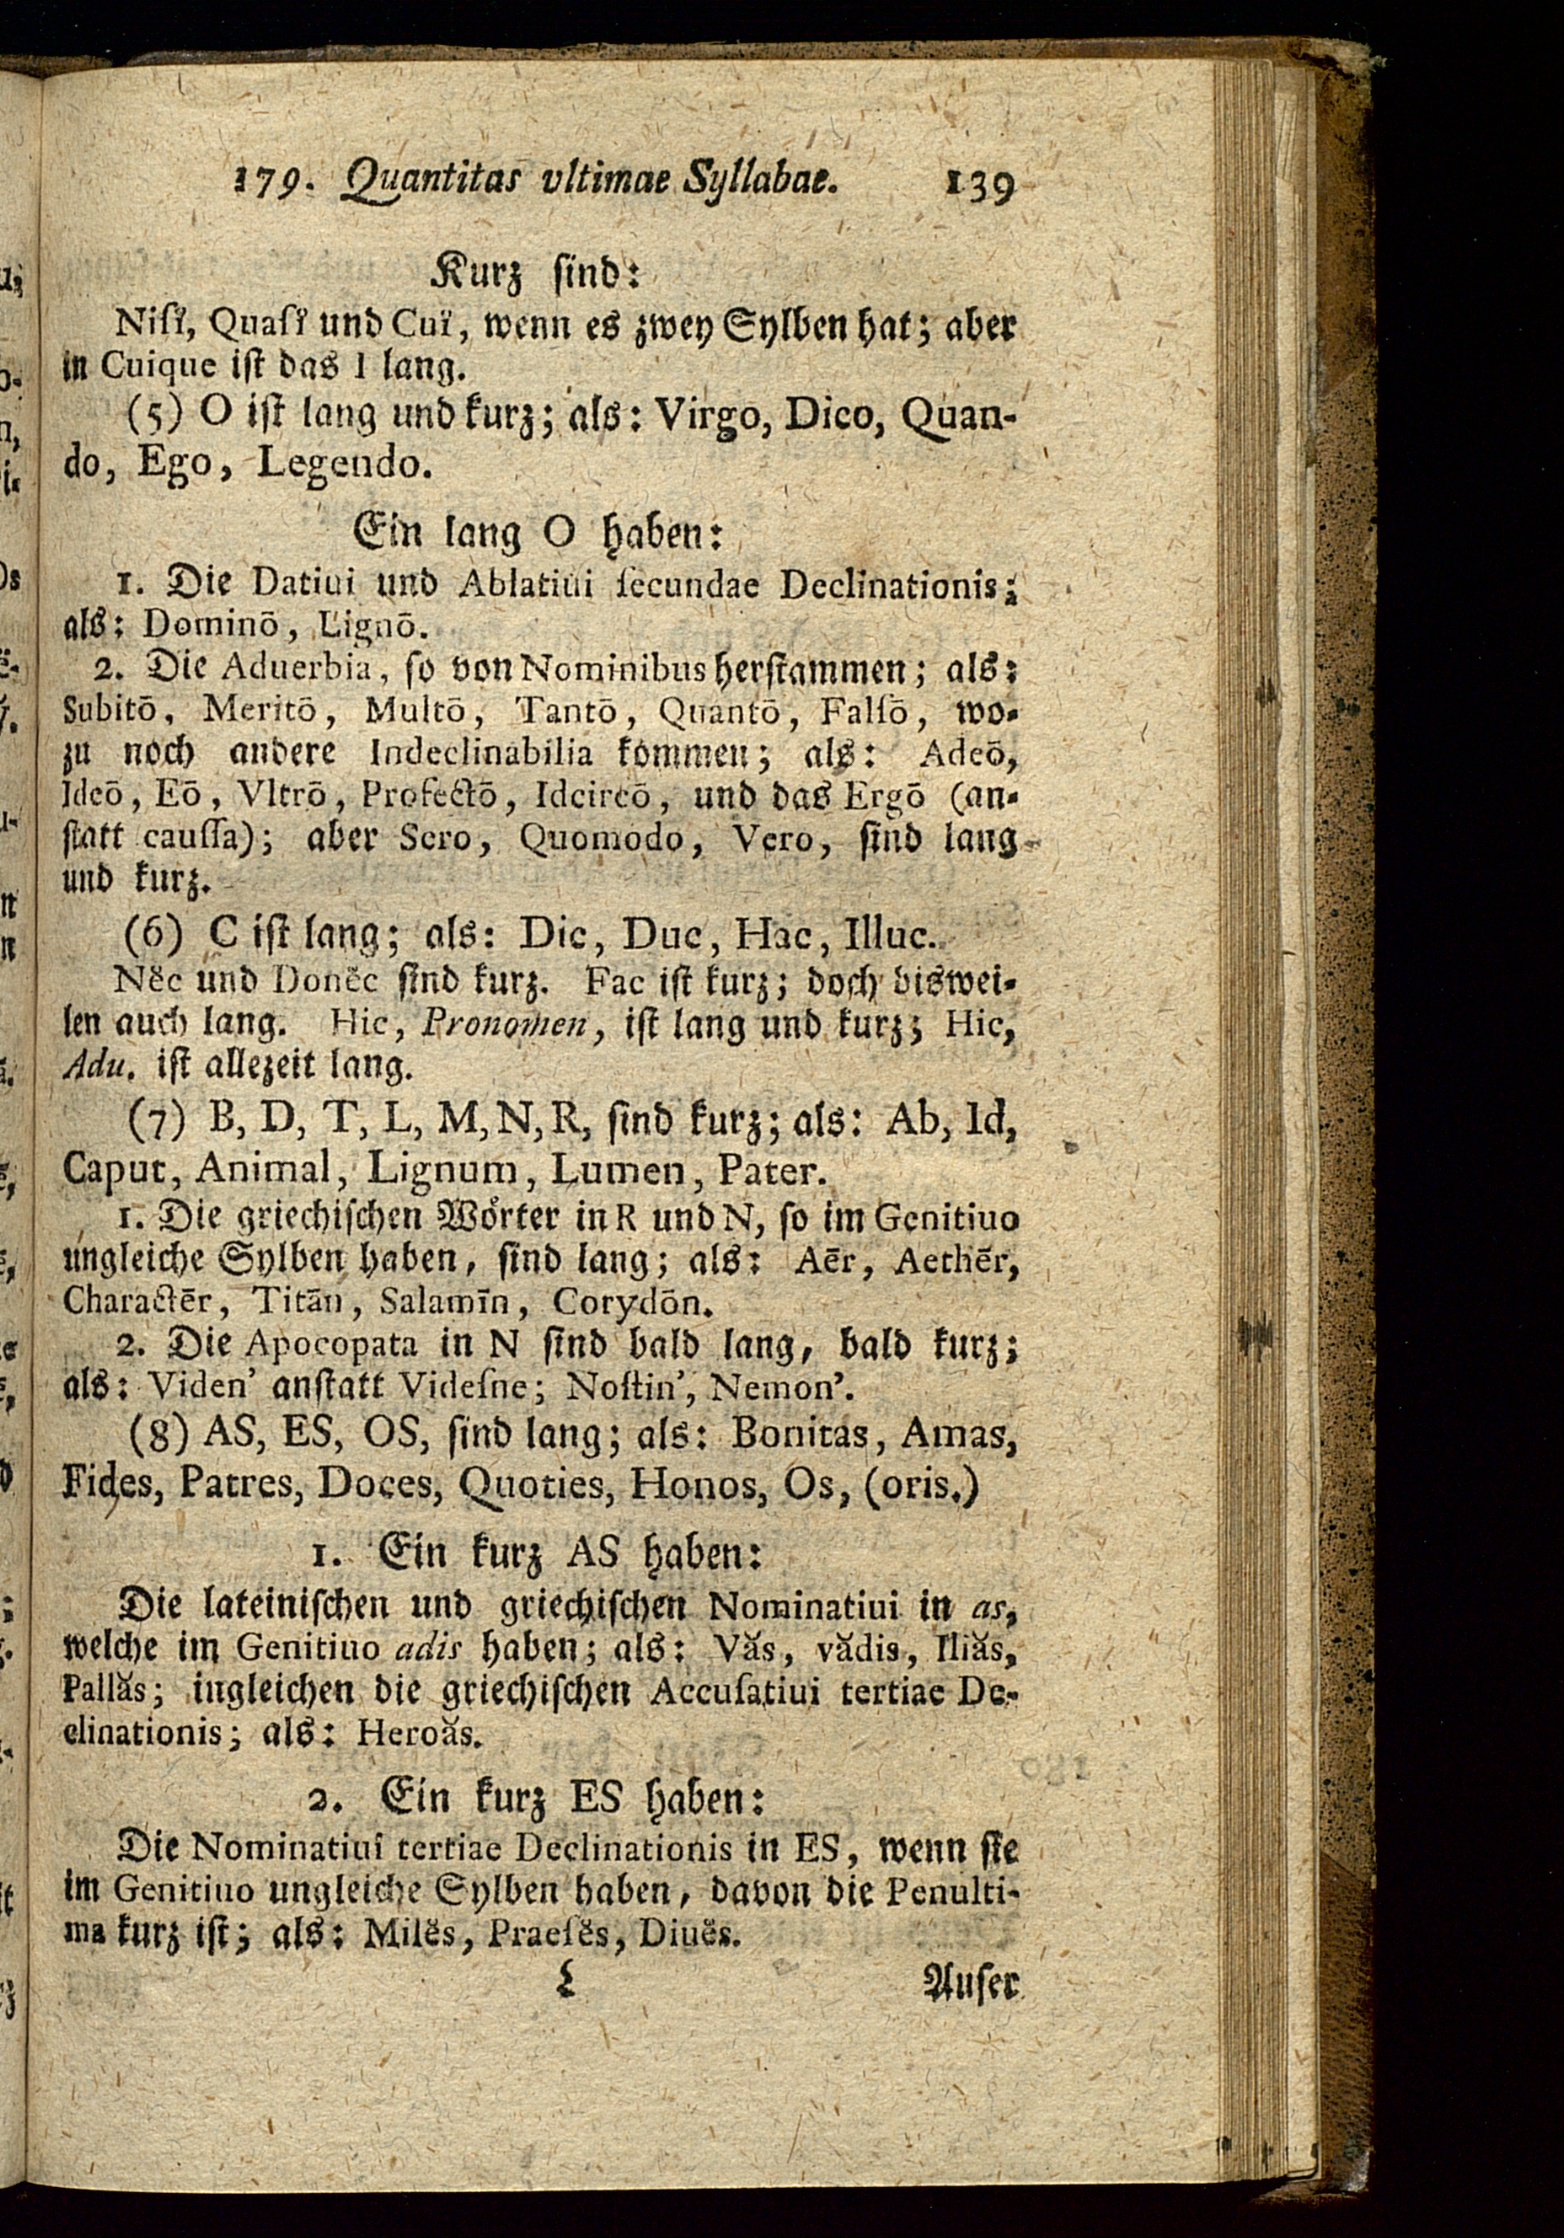 179. Quantitas vltimae Syllabae. 139
Kurz sind:
Niſĭ, Quaſĭ und Cuĭ, wenn es zwey Sylben hat; aber
in Cuique iſt das I lang.
(5) O iſt lang und kurz; als: Virgo, Dico, Quan-
do, Ego, Legendo.
Ein lang O haben:
1. Die Datiui und Ablatiui ſecundae Declinationis;
als: Dominō, Lignō.
2. Die Aduerbia, ſo von Nominibus herſtammen; als:
Subitō, Meritō, Multō, Tantō, Quantō, Falſō, wo-
zu noch andere Indeclinabilia kommen; als: Adeō,
Ideō, Eō, Vltrō, Profectō, Idcircō, und das Ergō (an-
ſtatt cauſſa); aber Sero, Quomodo, Vero, ſind lang
und kurz.
(6) C iſt lang; als: Dic, Duc, Hac, Illuc.
Nĕc und Donĕc ſind kurz. Fac iſt kurz; doch biswei-
len auch lang. Hic, Pronomen, iſt lang und kurz; Hic,
Adu. iſt allezeit lang.
(7) B, D, T, L, M, N, R, ſind kurz; als: Ab, Id,
Caput, Animal, Lignum, Lumen, Pater.
1. Die griechiſchen Wörter in R und N, ſo im Genitiuo
ungleiche Sylben haben, ſind lang; als: Aēr, Aethēr,
Charactēr, Titān, Salamīn, Corydōn.
2. Die Apocopata in N ſind bald lang, bald kurz;
als: Viden' anſtatt Videſne; Noſtin', Nemon'.
(8) AS, ES, OS, ſind lang; als: Bonitas, Amas,
Fides, Patres, Doces, Quoties, Honos, Os, (oris.)
1. Ein kurz AS haben:
Die lateiniſchen und griechiſchen Nominatiui in as,
welche im Genitiuo adis haben; als: Văs, vădis, Iliăs,
Pallăs; ingleichen die griechiſchen Accuſatiui tertiae De-
clinationis; als: Heroăs.
2. Ein kurz ES haben:
Die Nominatiui tertiae Declinationis in ES, wenn ſie
im Genitiuo ungleiche Sylben haben, davon die Penulti-
ma kurz iſt; als: Milĕs, Praeſĕs, Diuĕs.
L Auſer